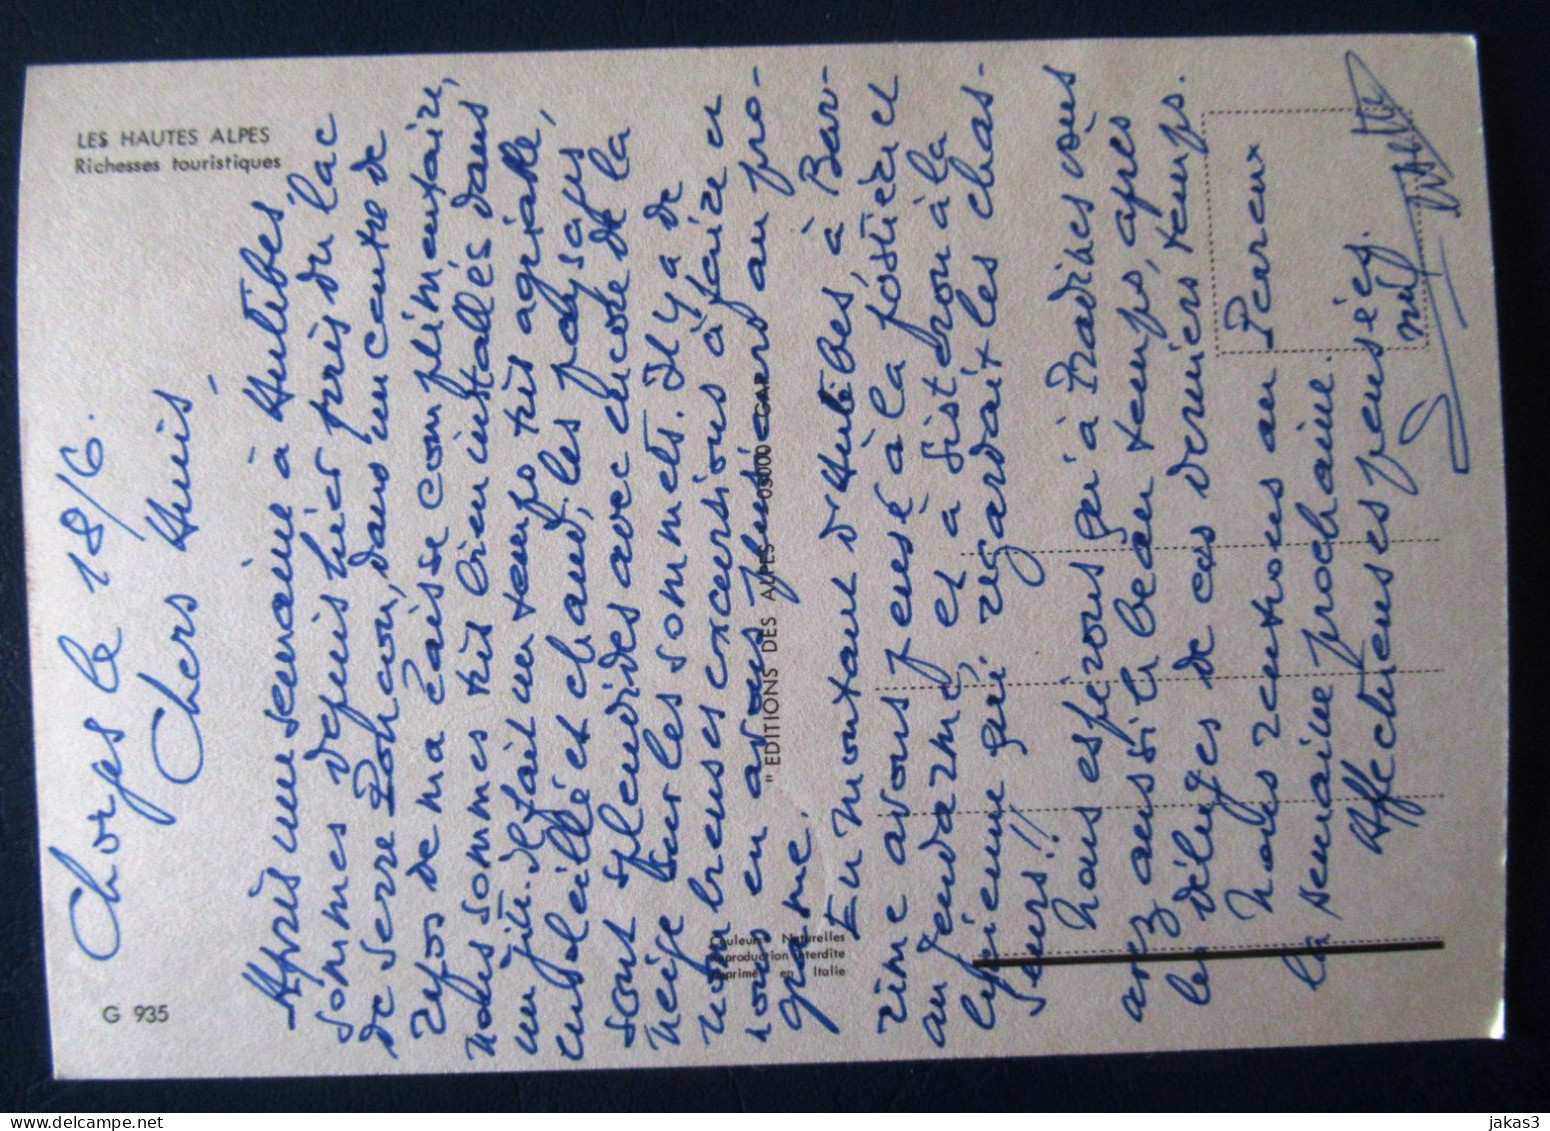 LES HAUTES ALPES
Richesses touristiques
G 935
"EDITIONS DES ALPES" 05000 GAP
Couleurs Naturelles
Reproduction interdite
Imprimé en Italie
Chorges le 18/6.
Chers Amis,
Après une semaine à Antibes
sommes depuis hier près du lac
de Serre Ponçon, dans un centre de
repos de ma Caisse complémentaire,
nous sommes très bien installés dans
un gîte. Il fait un temps très agréable,
ensoleillé et chaud, les paysages
sont splendides avec encore de la
neige sur les sommets. Il y a de
nombreuses excursions à faire et
nous en avons plusieurs au pro-
gramme.
En montant d'Antibes à Bar-
avons pensé à la
et à Sisteron à la
qui regardait les chas-
seurs!!
Nous espérons qu'à Pradines vous
avez aussi le beau temps, après
les déluges de ces derniers temps.
Nous rentrons au Perreux
la semaine prochaine.
Affectueuses pensées.